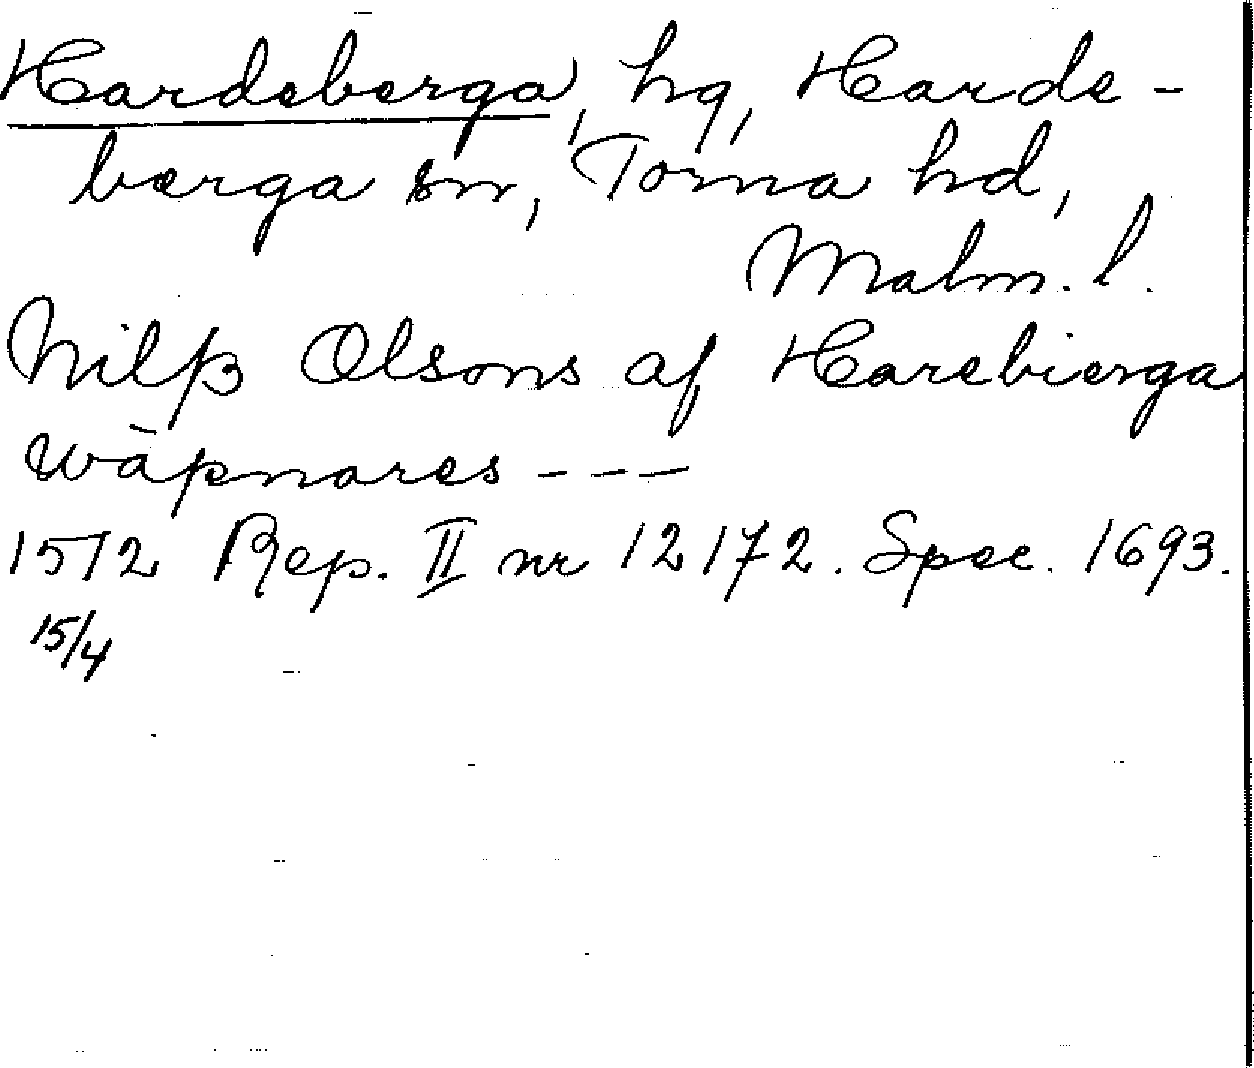 Hardeberga, hg, Harde-
berga sn, Torna hd,
Malm. l.
Nilß Olsons af Harebierga
wāpnares ---
1512 Rep. II nr 12172. Spec. 1693.
15/4